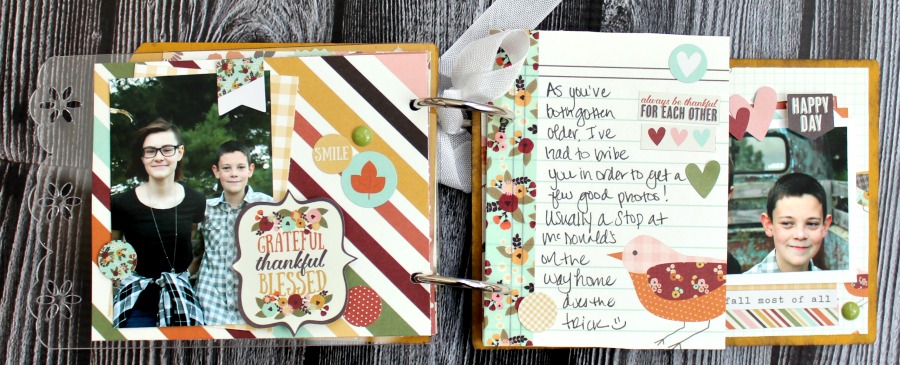 SMILE
GRATEFUL
thankful
BLESSED
As you've
both gotten
older, I've
had to bribe
you in order to get a
few good photos!
Usually a stop at
McDonald's
on the
way home
does the
trick
always be thankful
FOR EACH OTHER
HAPPY
DAY
fall most of all